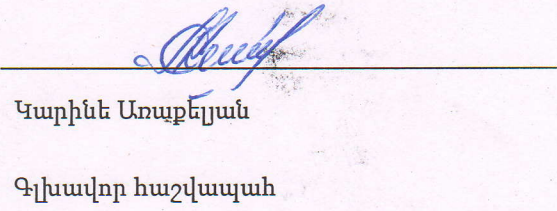 Կարինե Առաքելյան
Գլխավոր հաշվապահ